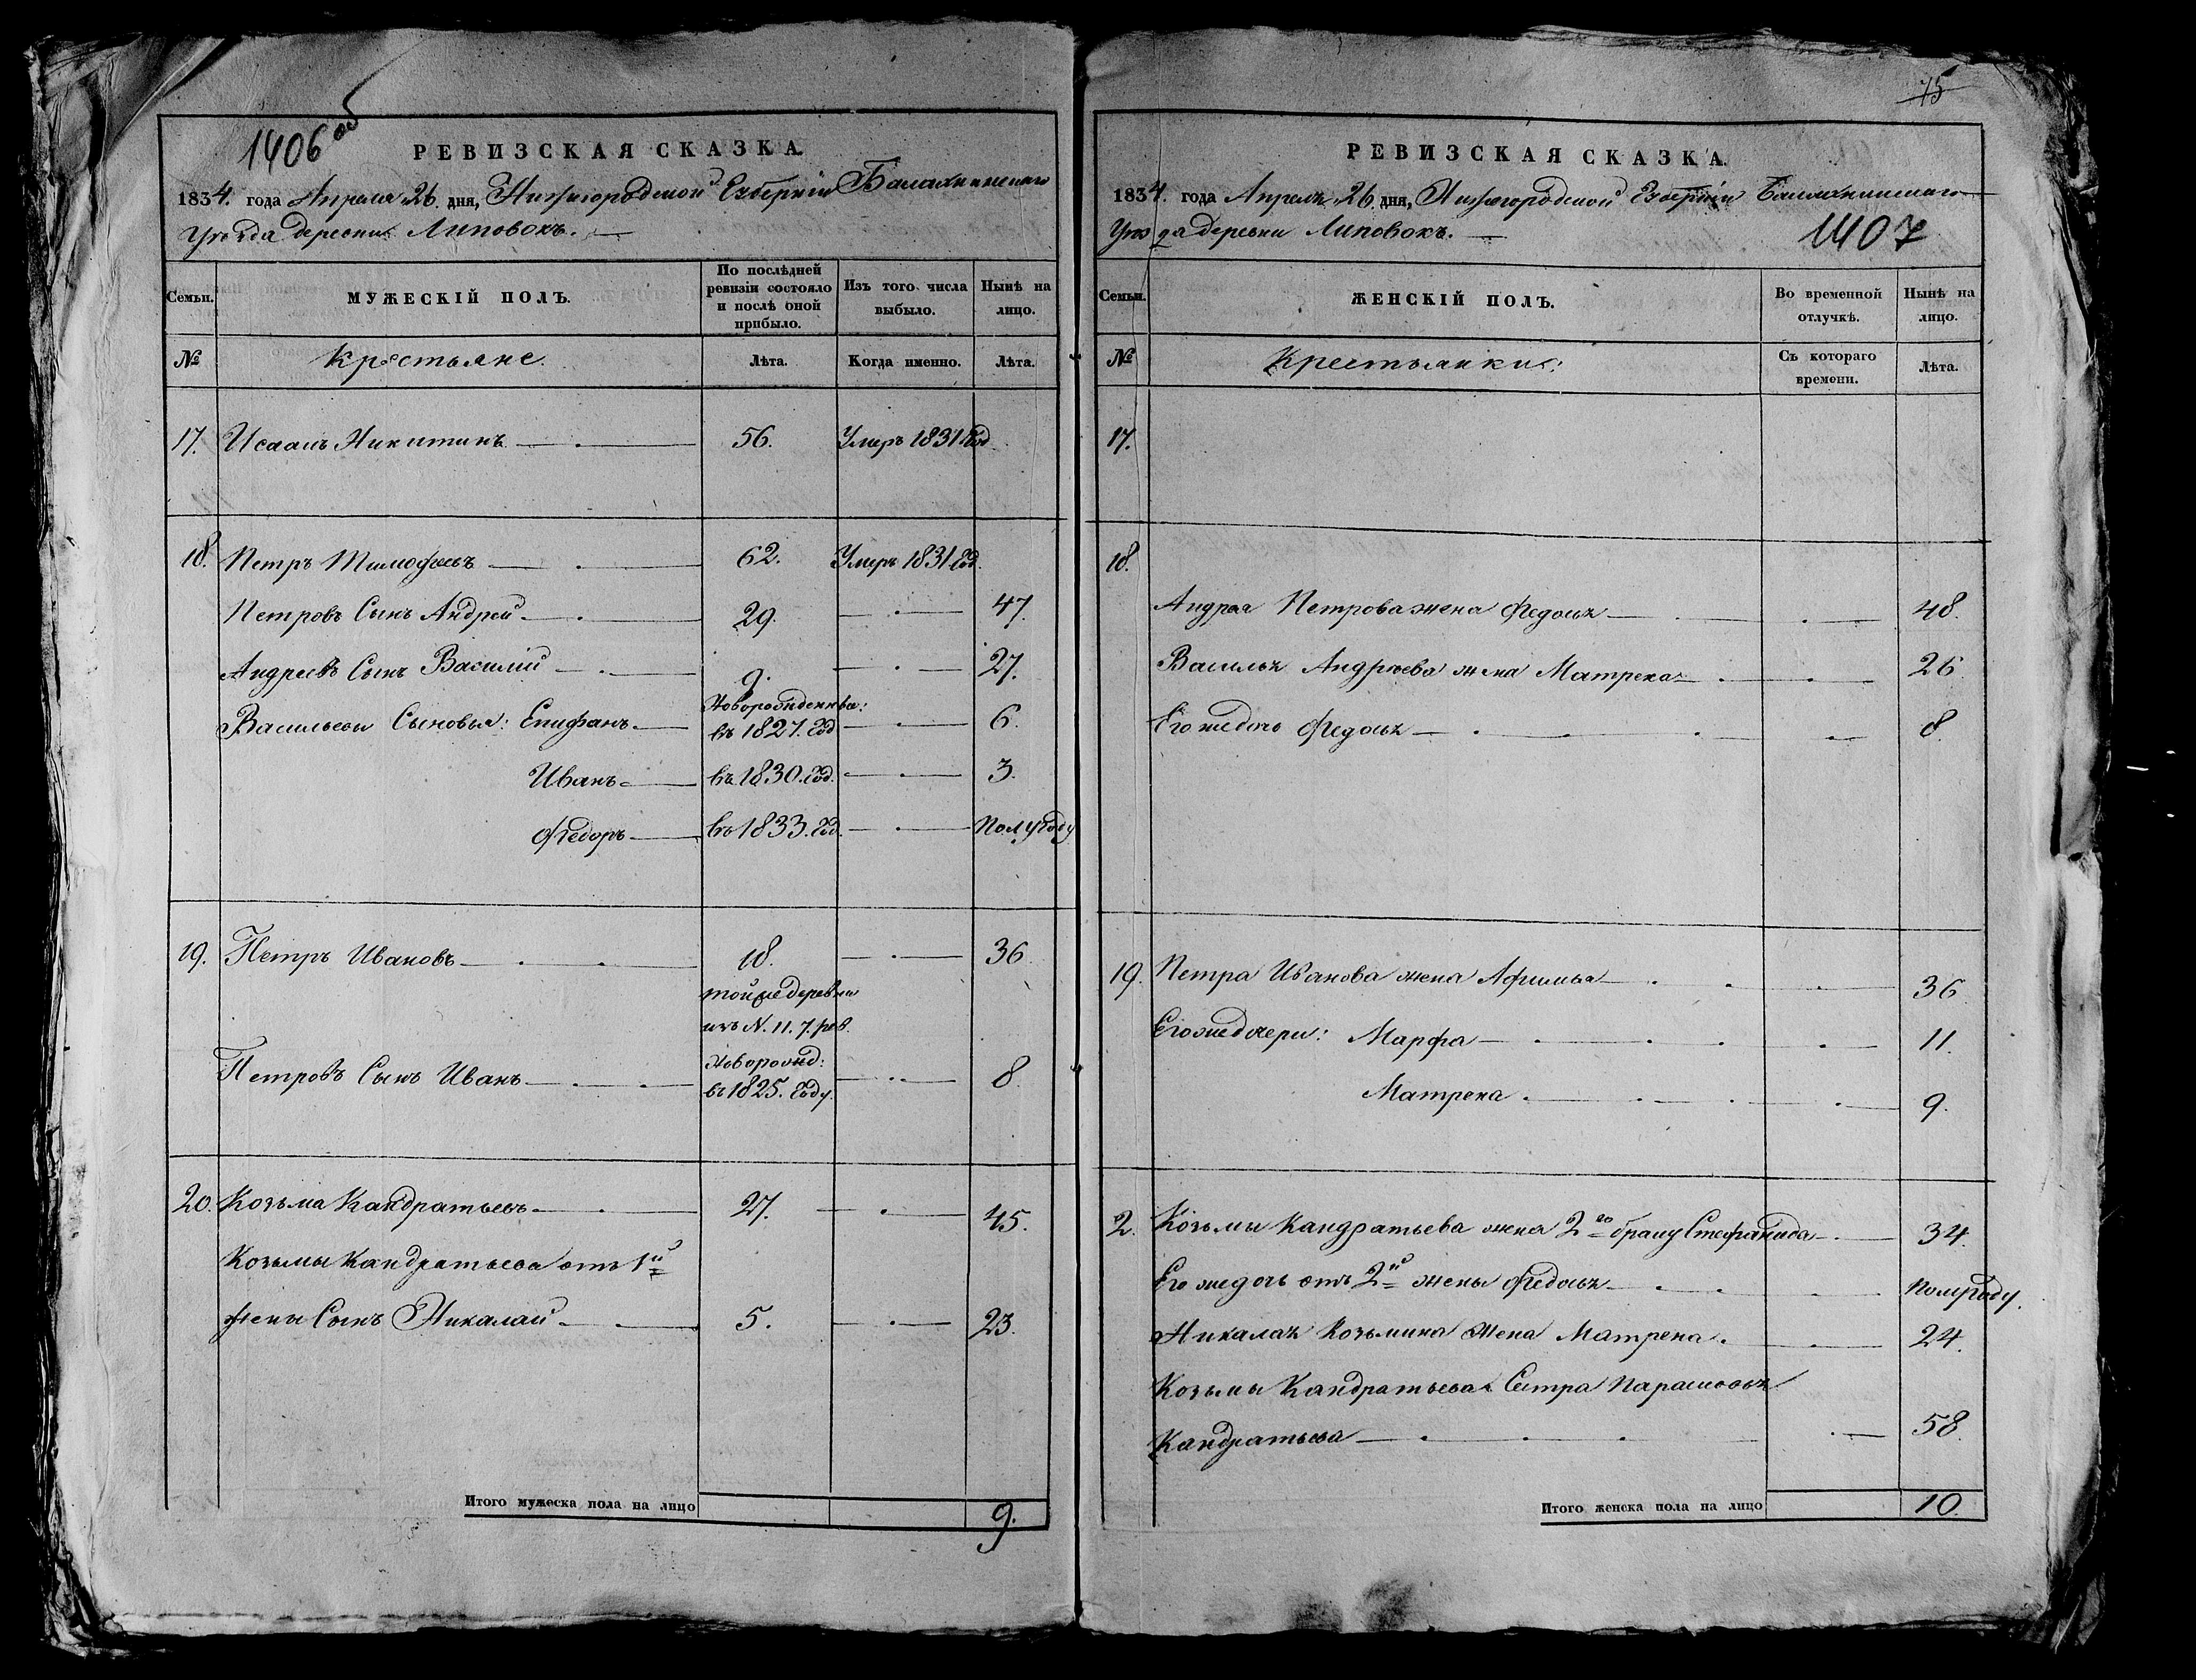 1406 об
РЕВИЗСКАЯ СКАЗКА.
1834. года Апреля 26 дня, Нижегородской Губернiи Балахнинскаго
Уѣзда деревни Липовокъ.
Семьи.
МУЖЕСКIЙ ПОЛЪ.
По послѣдней ревизiи состояло и послѣ оной прибыло.
Изъ того числа выбыло.
Нынѣ на лицо.
№ Крестьяне. Лѣта. Когда именно. Лѣта.
17. Исаакъ Никитинъ 56. Умеръ 1831 год
18. Петръ Тимофеевъ 62. Умеръ 1831 год.
Петровъ Сынъ Андрей 29. 47.
Андреевъ Сынъ Василiй 9. 27.
Новорожденныя:
Васильевы Сыновья: Епифанъ въ 1827. год 6.
Иванъ въ 1830. год. 3.
Федоръ въ 1833. год. Полугоду
19. Петръ Ивановъ 18. 36
той же деревни
изъ N. 11. 7. рев.
Новорожд:
Петровъ Сынъ Иванъ въ 1825. году. 8.
20. Козьма Кандратьевъ 27. 45.
Козьмы Кандратьева отъ 1й
жены Сынъ Никалай 5. 23.
Итого мужеска пола на лицо 9.
75
РЕВИЗСКАЯ СКАЗКА.
1834. года Апреля 26 дня, Нижегородской Губернiи Балахнинскаго
Уѣзда деревни Липовокъ.
1407
Семьи.
ЖЕНСКIЙ ПОЛЪ.
Во временной отлучкѣ.
Нынѣ на лицо.
№ Крестьянки: Съ котораго времени. Лѣта.
17.
18.
Андрея Петрова жена Федосья 48.
Василья Андрѣева жена Матрена 26
Его же дочь Федосья 8.
19. Петра Иванова жена Афимья 36
Его же дочери: Марфа 11.
Матрена 9.
2. Козьмы Кандратьева жена 2го браку Стефанида 34.
Его же дочь отъ 2й жены Федосья Полугоду.
Никалая Козьмина жена Матрена. 24.
Козьмы Кандратьева Сестра Парасковья
Кандратьева 58.
Итого женска пола на лицо 10.